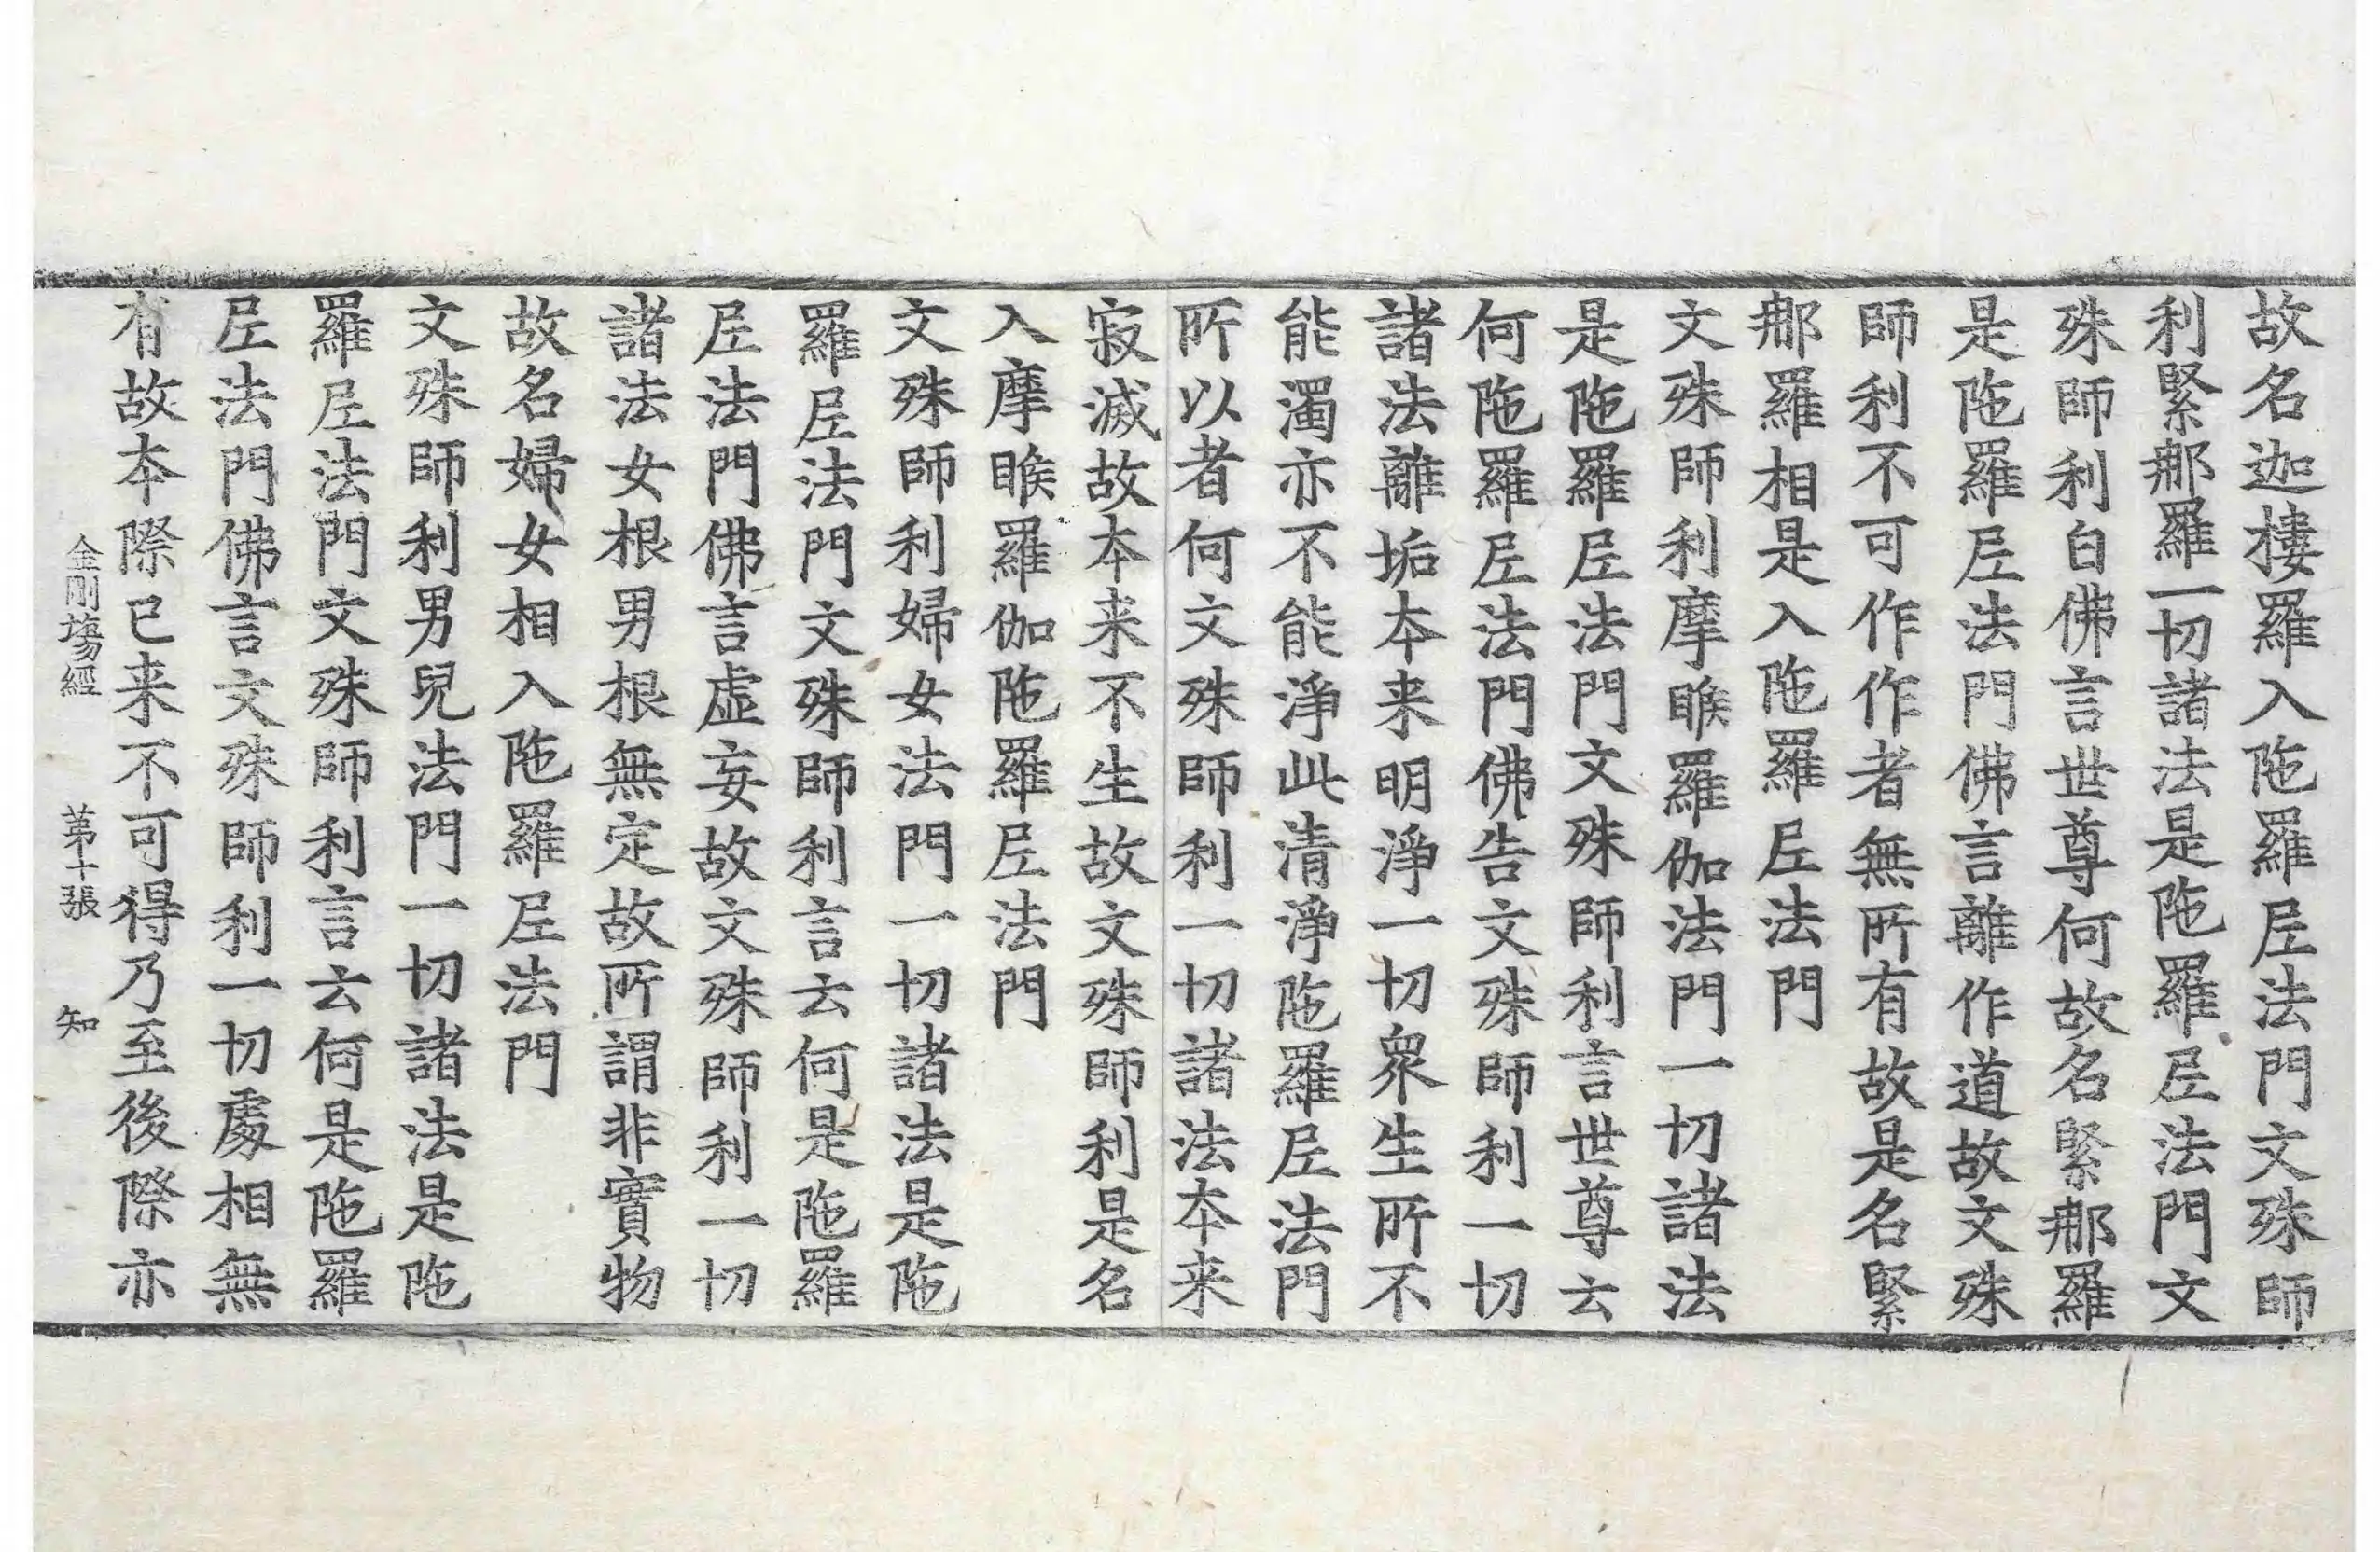 故名迦樓羅入陁羅𡰱法門文殊師
利緊那羅一切諸法是陁羅𡰱法門文
殊師利白佛言世尊何故名緊那羅
是陁羅𡰱法門佛言離作道故文殊
師利不可作作者無所有故是名緊
那羅相是入陁羅𡰱法門
文殊師利摩睺羅伽法門一切諸法
是陁羅𡰱法門文殊師利言世尊云
何陁羅𡰱法門佛告文殊師利一切
諸法離垢本来明淨一切衆生所不
能濁亦不能淨此清淨陁羅𡰱法門
所以者何文殊師利一切諸法本来
寂滅故本来不生故文殊師利是名
入摩睺羅伽陁羅𡰱法門
文殊師利婦女法門一切諸法是陁
羅𡰱法門文殊師利言云何是陁羅
𡰱法門佛言虛妄故文殊師利一切
諸法女根男根無定故所謂非實物
故名婦女相入陁羅𡰱法門
文殊師利男兒法門一切諸法是陁
羅𡰱法門文殊師利言云何是陁羅
𡰱法門佛言文殊師利一切處相無
有故本際已来不可得乃至後際亦
金剛場經 苐十張 知